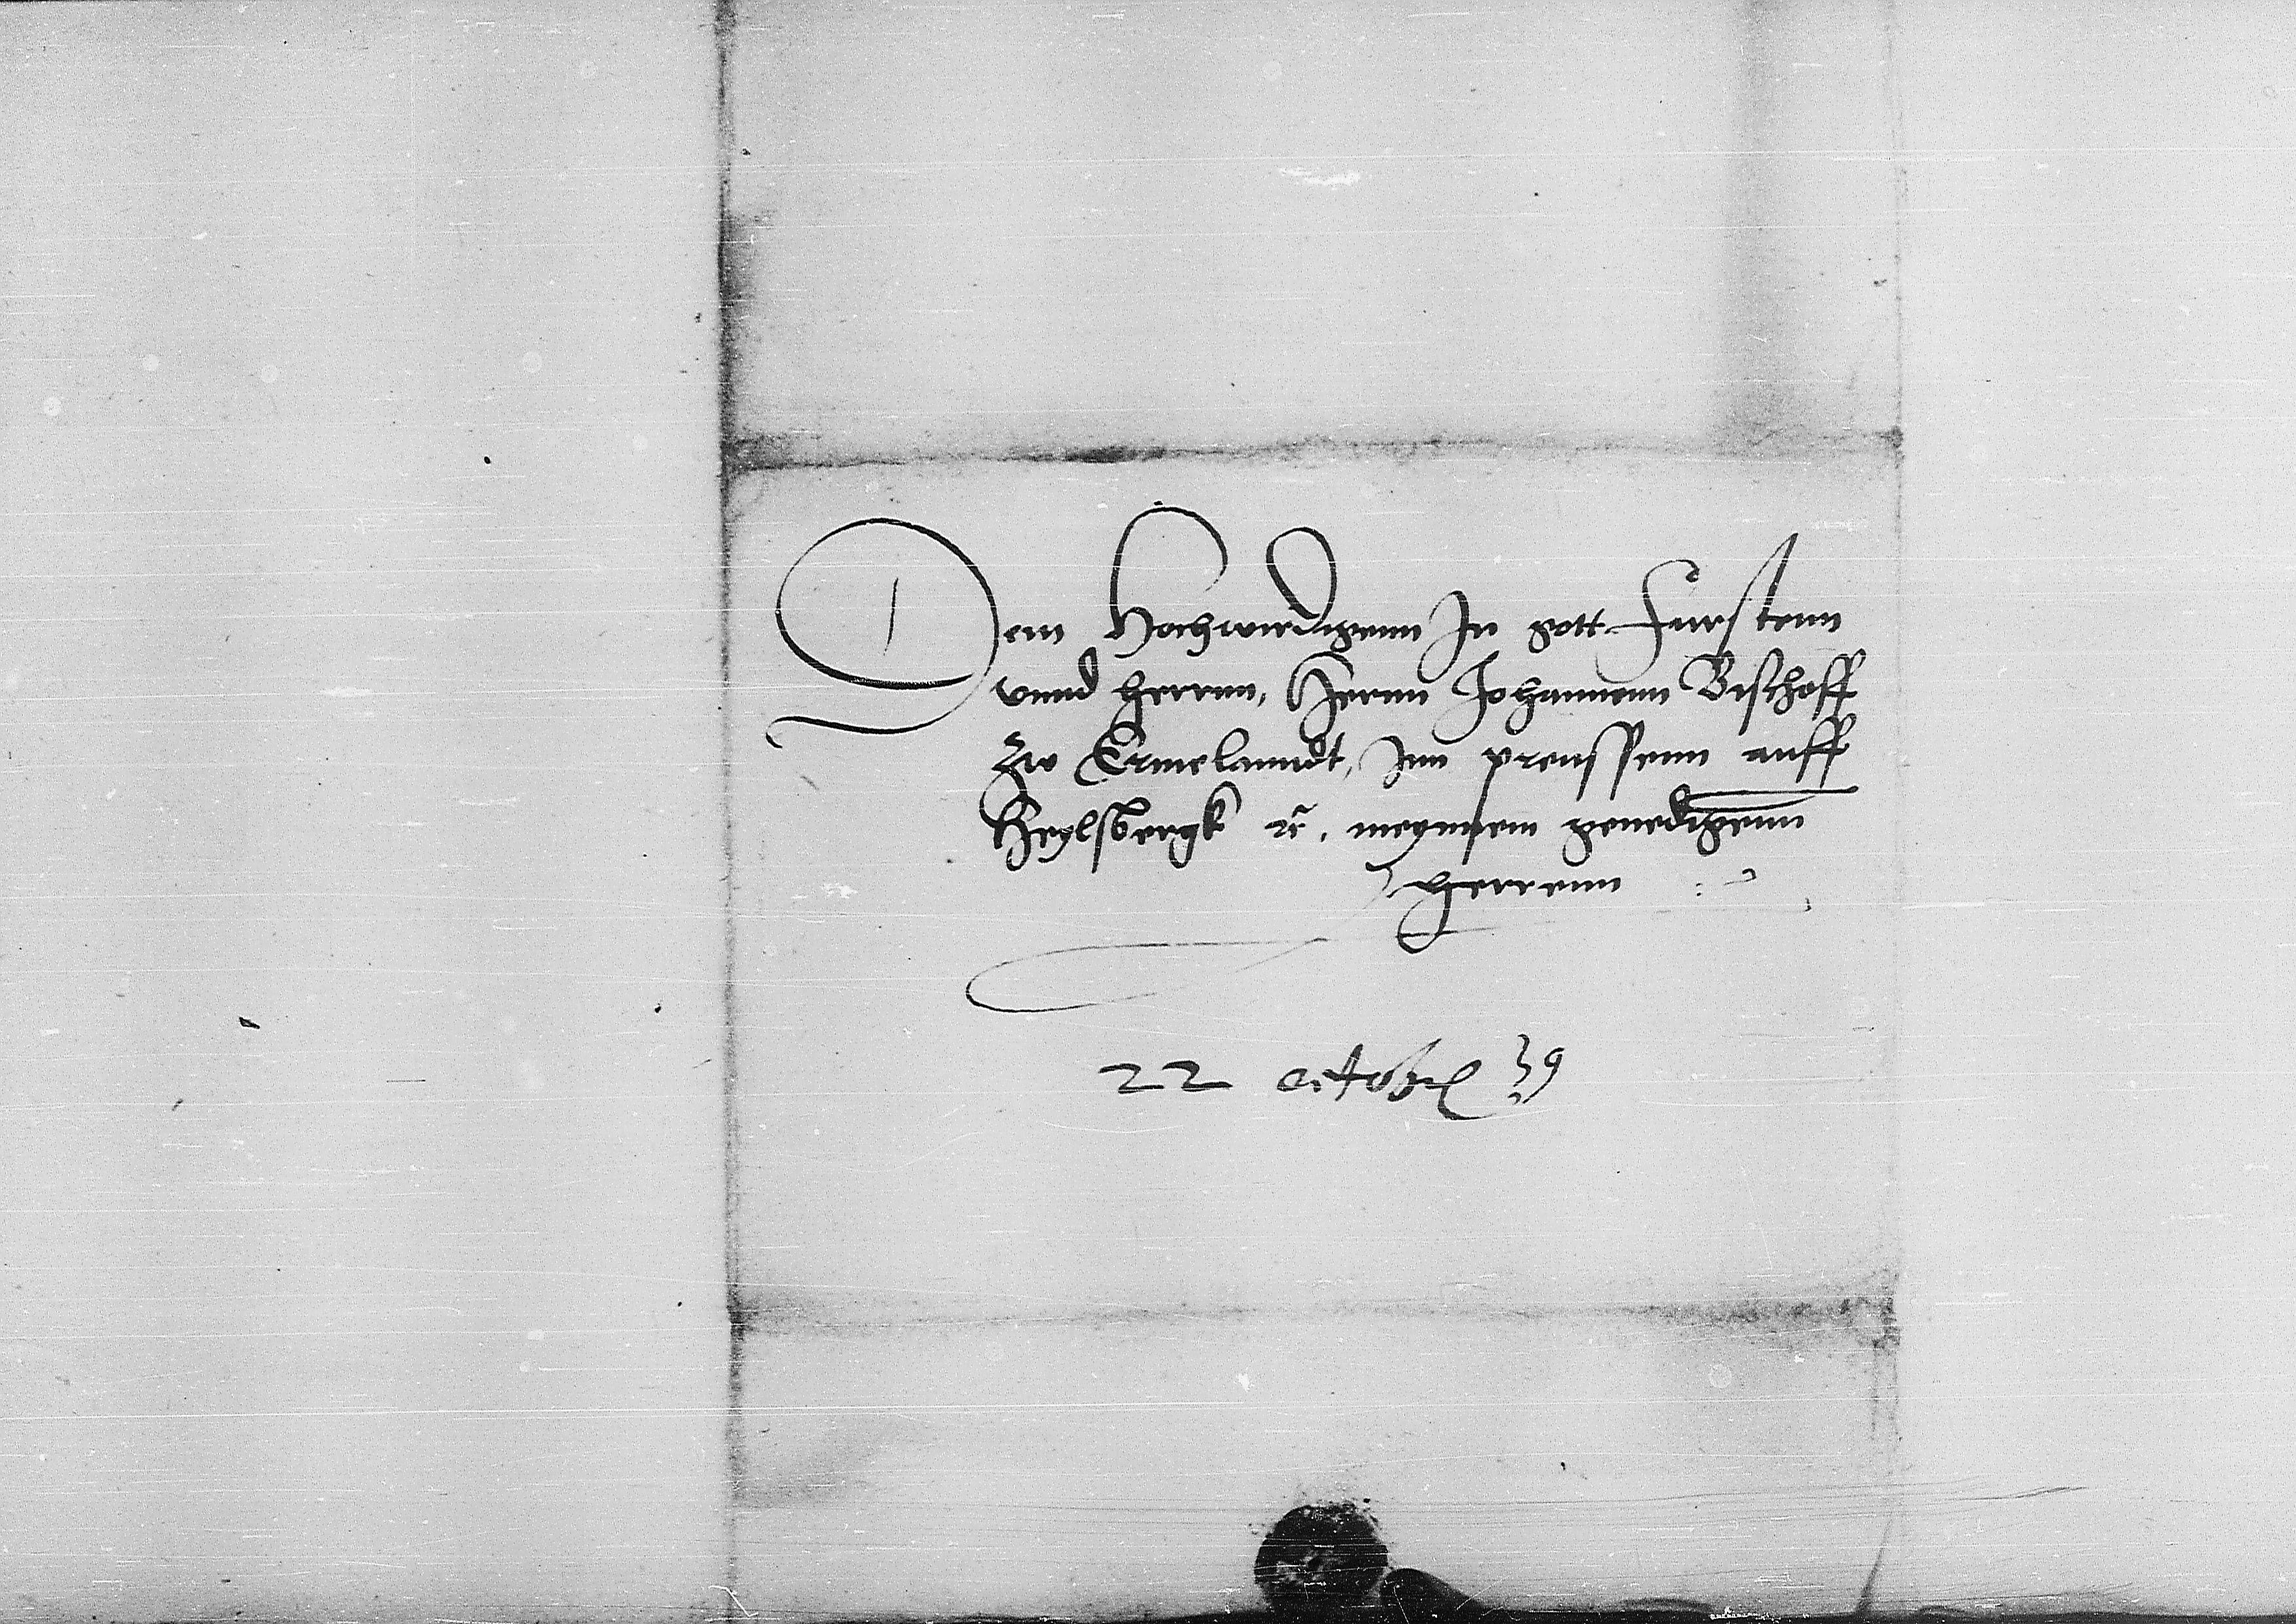 Dem Hochwirdigenn In gott Furstenn
vnnd herrnn, Hernn Johannenn Bischoff
Zw Ermelanndt, Inn preussenn auff
Heylsbergk ꝛc. meynnem genedigenn
herrenn
22 octobris 39